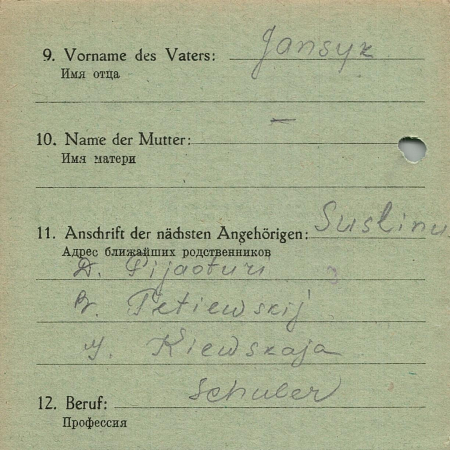 9. Vorname des Vaters: Jansyx
Имя отца
10. Name der Mutter: —
Имя матери
11. Anschrift der nächsten Angehörigen: Suslinu
Адрес ближайших родственников
D. Pijaoturi
B. Petiewskij
J. Kiewskaja
12. Beruf: Schuler
Профессия